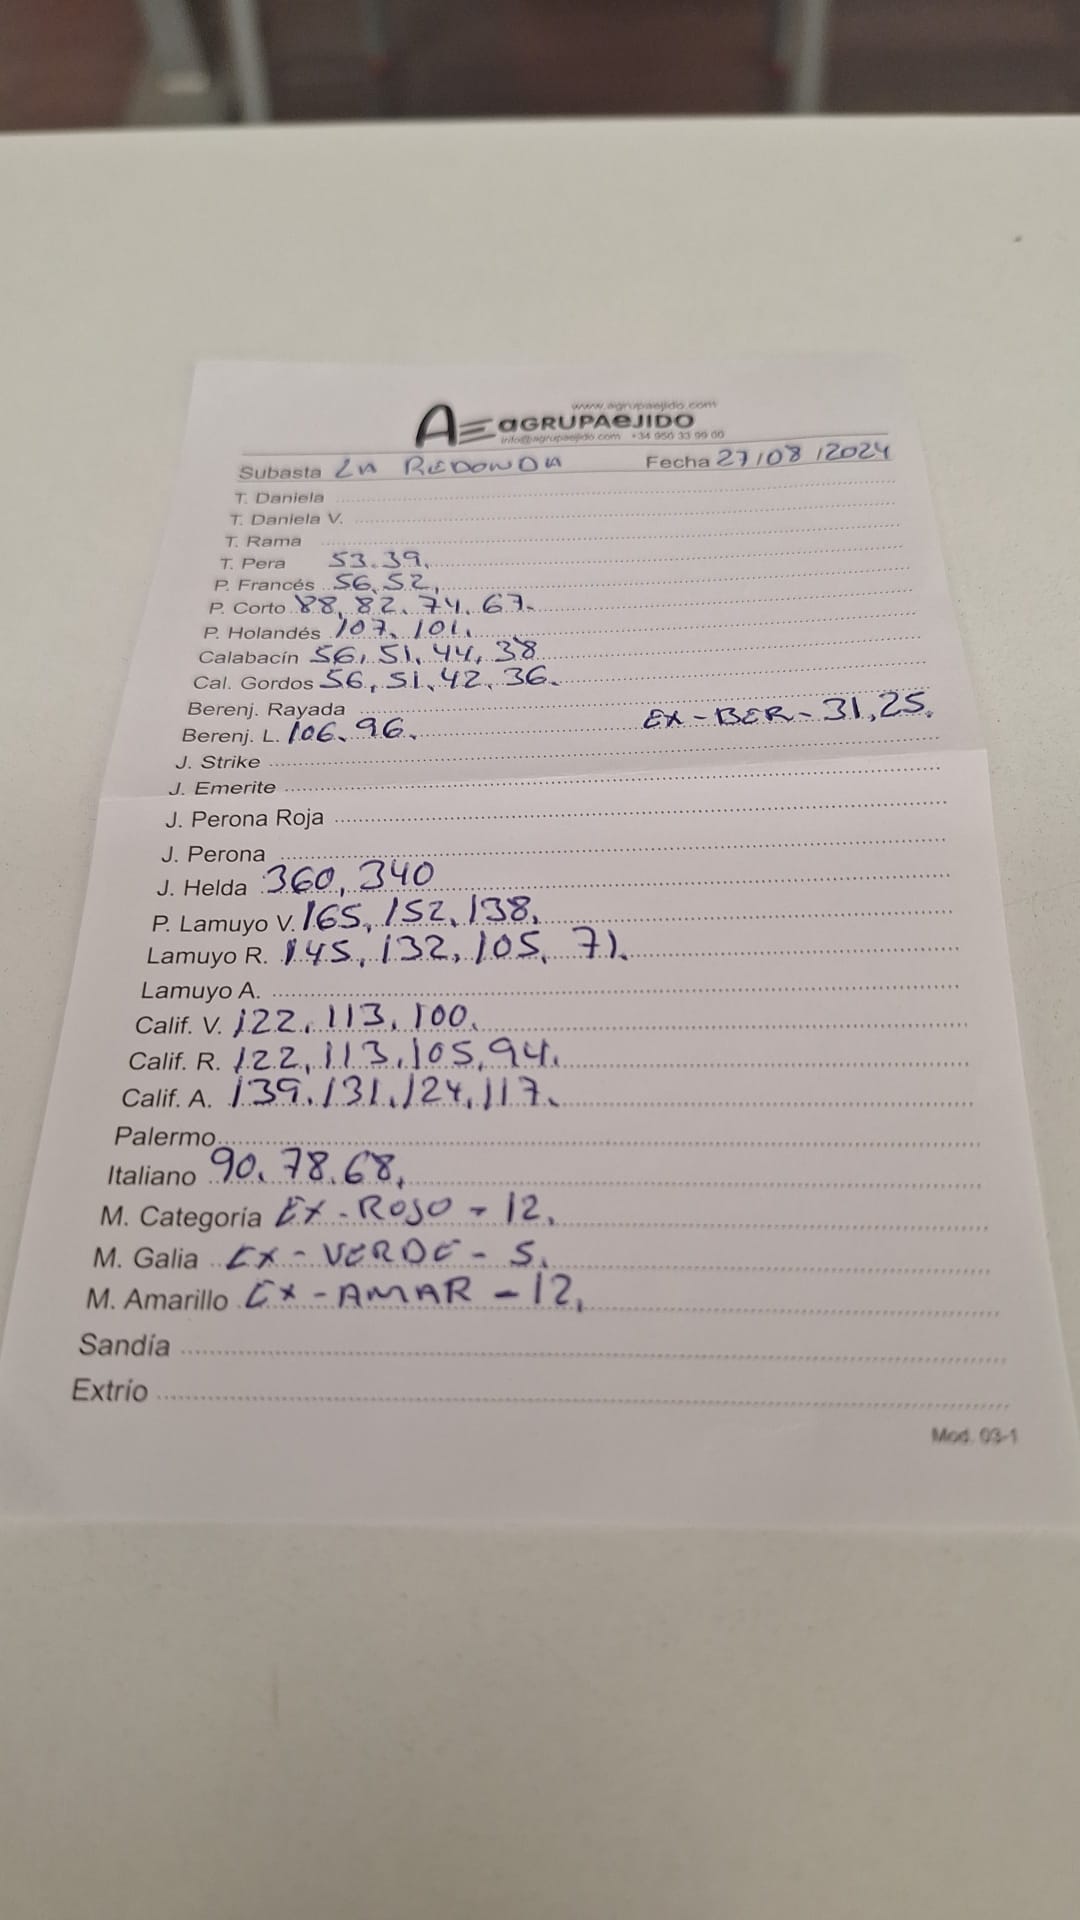 www.agrupaejido.com
AE aGRUPAeJIDO
info@agrupaejido.com +34 950 33 99 00
Subasta LA REDONDA Fecha 27/08/2024
T. Daniela
T. Daniela V.
T. Rama
T. Pera 53.39.
P. Francés 56,52,
P. Corto 88, 82, 74, 67.
P. Holandés 107, 101,
Calabacín 56, 51, 44, 38
Cal. Gordos 56, 51, 42, 36.
Berenj. Rayada
Berenj. L. 106, 96. EX-BER-31,25.
J. Strike
J. Emerite
J. Perona Roja
J. Perona
J. Helda 360, 340
P. Lamuyo V. 165, 152, 138,
Lamuyo R. 145, 132, 105, 71.
Lamuyo A.
Calif. V. 122, 113, 100,
Calif. R. 122, 113, 105, 94.
Calif. A. 139, 131, 124, 117.
Palermo
Italiano 90, 78, 68,
M. Categoría EX-ROJO-12,
M. Galia EX-VERDE-5.
M. Amarillo EX-AMAR-12,
Sandía
Extrío
Mod. 03-1